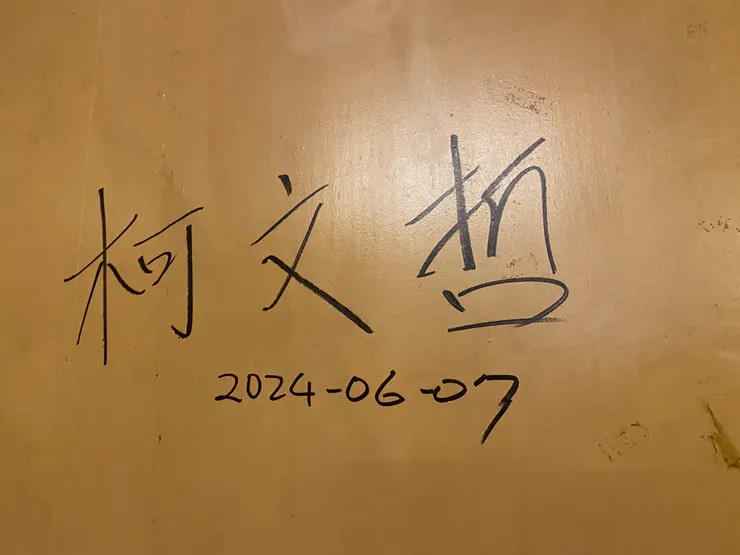 柯文哲
2024-06-07